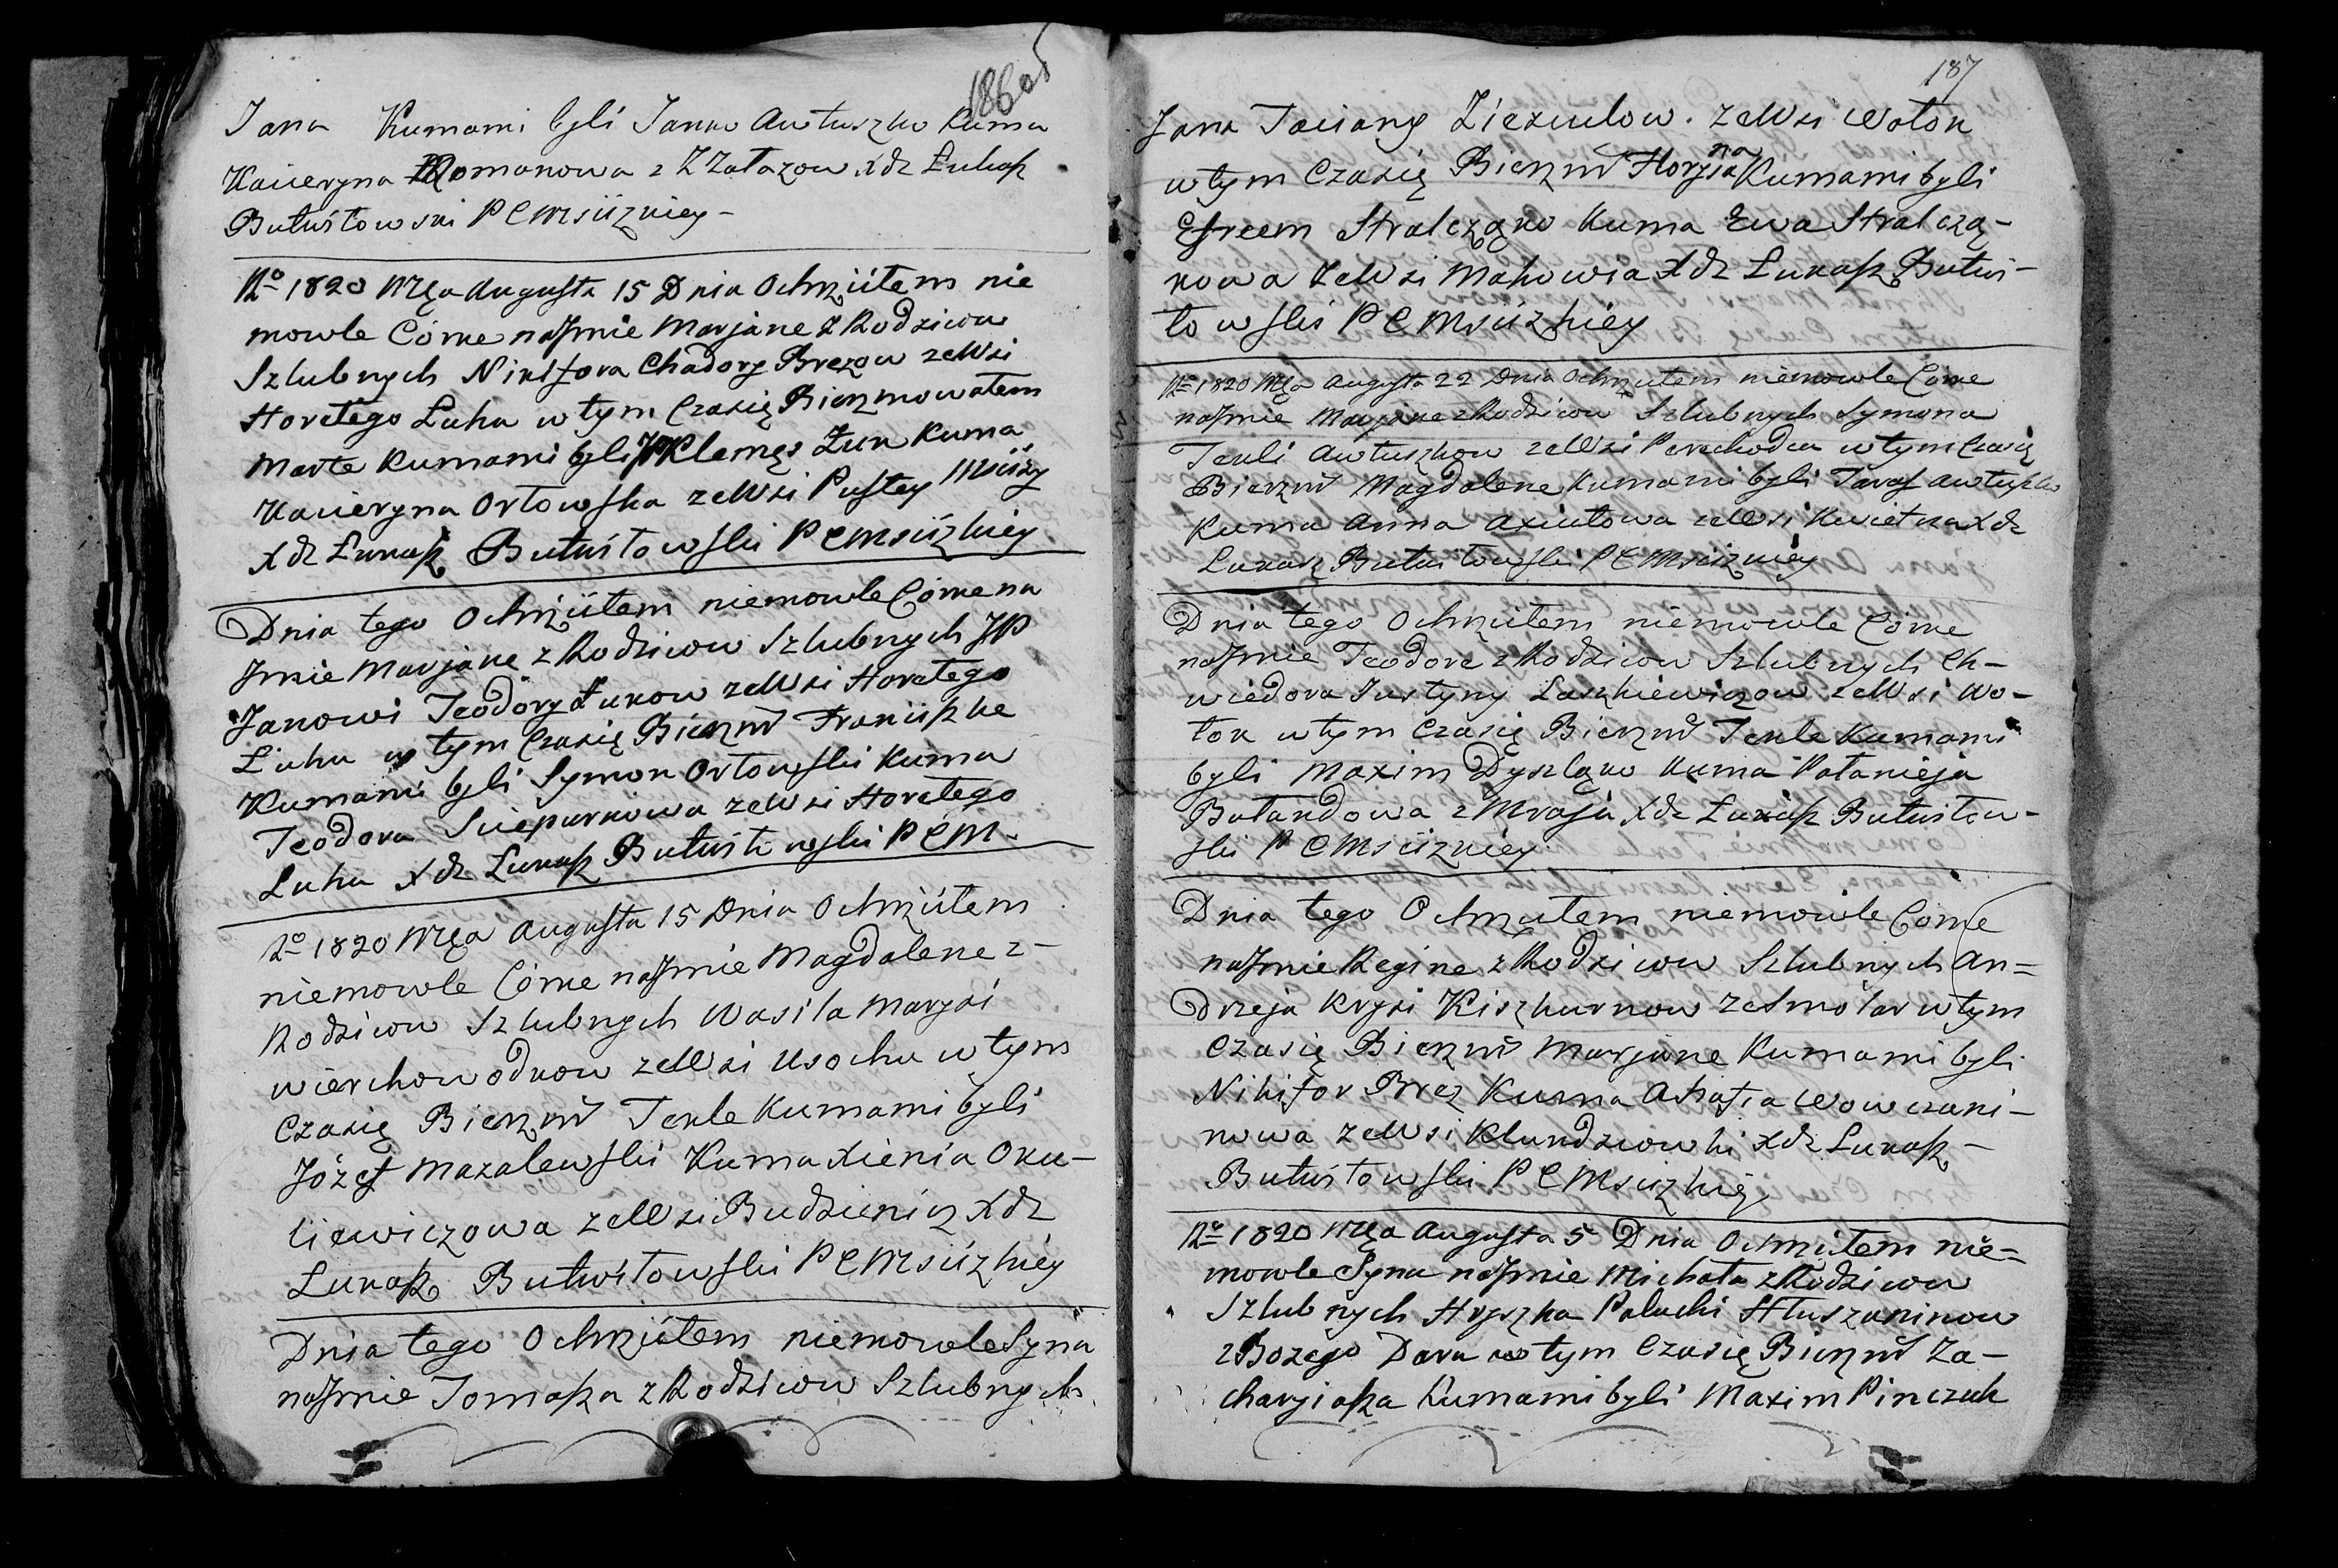 186 об
Jana Kumami byli Janko Awtuszko Kuma
Kacieryna Romanowa z Załazow Xdz Łukasz
Butwiłowski P C Mściżkiey –
Rº 1820 Mca Augusta 15 Dnia Ochrzciłem nie
mowle Córke na Jmie Marjane z Rodzicow
Szlubnych Nikifora Chadory Brezow ze Wsi
Horełego Luhu w tym Czasię Bierzmowałem
Marte Kumami byli JP Klemęs Żuk Kuma
Kacieryna Orłowska ze Wsi Pustey Mściży
Xdz Łukasz Butwiłowski P C Mściżkiey
Dnia tego Ochrzciłem niemowle Córke na
Jmie Marjane z Rodzicow Szlubnych JP
Janowi Teodory Żukow ze Wsi Horełego
Luhu w tym Czasię Bierzm Franciszke
Kumami byli Symon Orłowski Kuma
Teodora Ściepurkowa ze Wsi Horełego
Luhu Xdz Łukasz Butwiłowski P C M.
Rº 1820 Mca Augusta 15 Dnia Ochrzciłem
niemowle Córke na Jmie Magdalene z –
Rodzicow Szlubnych Wasila Marysi
Wierchowodkow ze Wsi Usochu w tym
Czasię Bierzm Tekle Kumami byli
Józef Mazalewski Kuma Xienia Oku –
liewiczowa ze Wsi Budzienicz Xdz
Łukasz Butwiłowski P C Mściżkiey
Dnia tego Ochrzciłem niemowle Syna
na Jmie Tomasza z Rodzicow Szlubnych
187
Jana Taciany Ziezulow. ze Wsi Wołok
w tym Czasię Bierzm Horysia na Kumami byli
Efreem Stralcząko Kuma Ewa Stralczą –
kowa ze Wsi Mahowia Xdz Łukasz Butwi –
łowski P C Mściżkiey
Rº 1820 Mca Augusta 22 Dnia Ochrzciłem niemowle Córke
na Jmie Marjane z Rodzicow Szlubnych Symona
Tekli Awtuszkow ze Wsi Perechodca w tym Czasię
Bierzm Magdalene Kumami byli Taras Awtuszko
Kuma Anna Axiutowa ze Wsi Kwietcza Xdz
Łukasz Butwiłowski P C Mściżkiey
Dnia tego Ochrzciłem niemowle Córke
na Jmie Teodore z Rodzicow Szlubnych Ch –
wiedora Justyny Laszkiewiczow ze Wsi Wo –
łok w tym Czasię Bierzm Tekle Kumami
byli Maxim Dyszląko Kuma Połanieja
Bałandowa z Mraja Xdz Łukasz Butwiłow –
ski P C Mściżkiey
Dnia tego Ochrzciłem niemowle Córke
na Jmie Regine z Rodzicow Szlubnych An =
Drzeja Krysi Kiszkurnow ze Smolar w tym
Czasię Bierzm Marjane Kumami byli
Nikifor Brez Kuma Ahafia Wowczani –
nowa ze Wsi Klundziowki Xdz Łukasz –
Butwiłowski P C Mściżkiey
Rº 1820 Mca Augusta 5 Dnia Ochrzciłem nie =
mowle Syna na Jmie Michała z Rodzicow
Szlubnych Hryszka Paluchi Hluszaninow
z Bożego Daru w tym Czasię Bierzm Za –
charyjasza Kumami byli Maxim Pinczuk